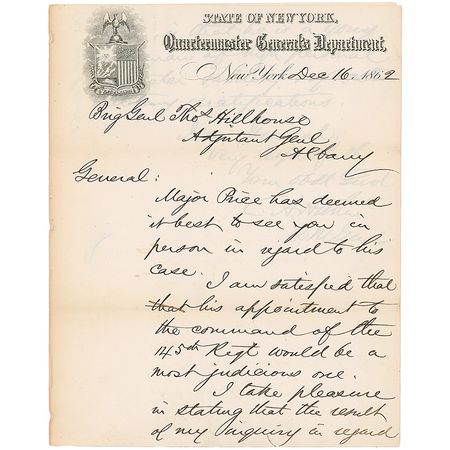 STATE OF NEW YORK,
Quartermaster General's Department,
New York Dec 16 1862
Brig Genl Thos Hillhouse
Adjutant Genl
Albany
General:
Major Price has deemed
it best to see you in
person in regard to his
case.
I am satisfied that
that his appointment to
the command of the
145th Regt would be a
most judicious one.
I take pleasure
in stating that the result
of my inquiry in regard